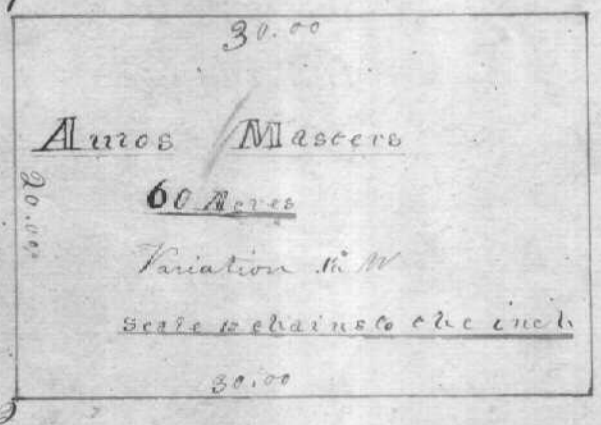 30.00
Amos Masters
20.00
60 Acres
Variation W
Scale chains to the inch
30.00